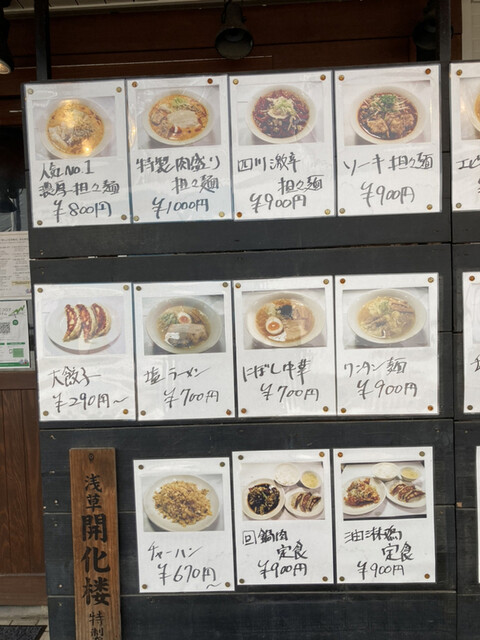 人気No.1
濃厚担々麺
¥800円
特製肉盛り
担々麺
¥1000円
四川激辛
担々麺
¥900円
ソーキ担々麺
¥900円
エビ
大餃子
¥290円〜
塩ラーメン
¥700円
にぼし中華
¥700円
ワンタン麺
¥900円
チャーハン
¥670円〜
回鍋肉
定食
¥900円
油淋鶏
定食
¥900円
浅草
開化楼
特製